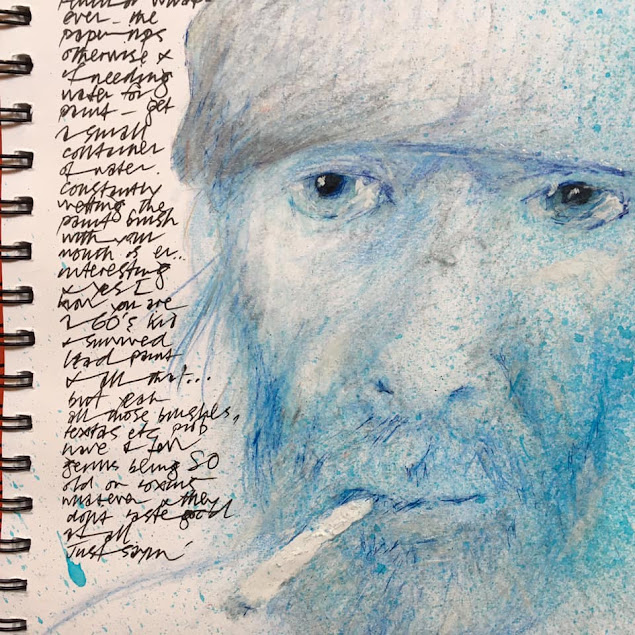 ever - the
paper rips
otherwise &
if needing
water for
paint - get
a small
container
of water.
constantly
wetting the
paint brush
with your
mouth is er...
interesting
& yes I
know you are
a 60's kid
& survived
lead paint
& all that...
but yeah
all those brushes,
textas etc prob
have a few
germs being SO
old or
whatever & they
don't taste good
at all
Just sayin'